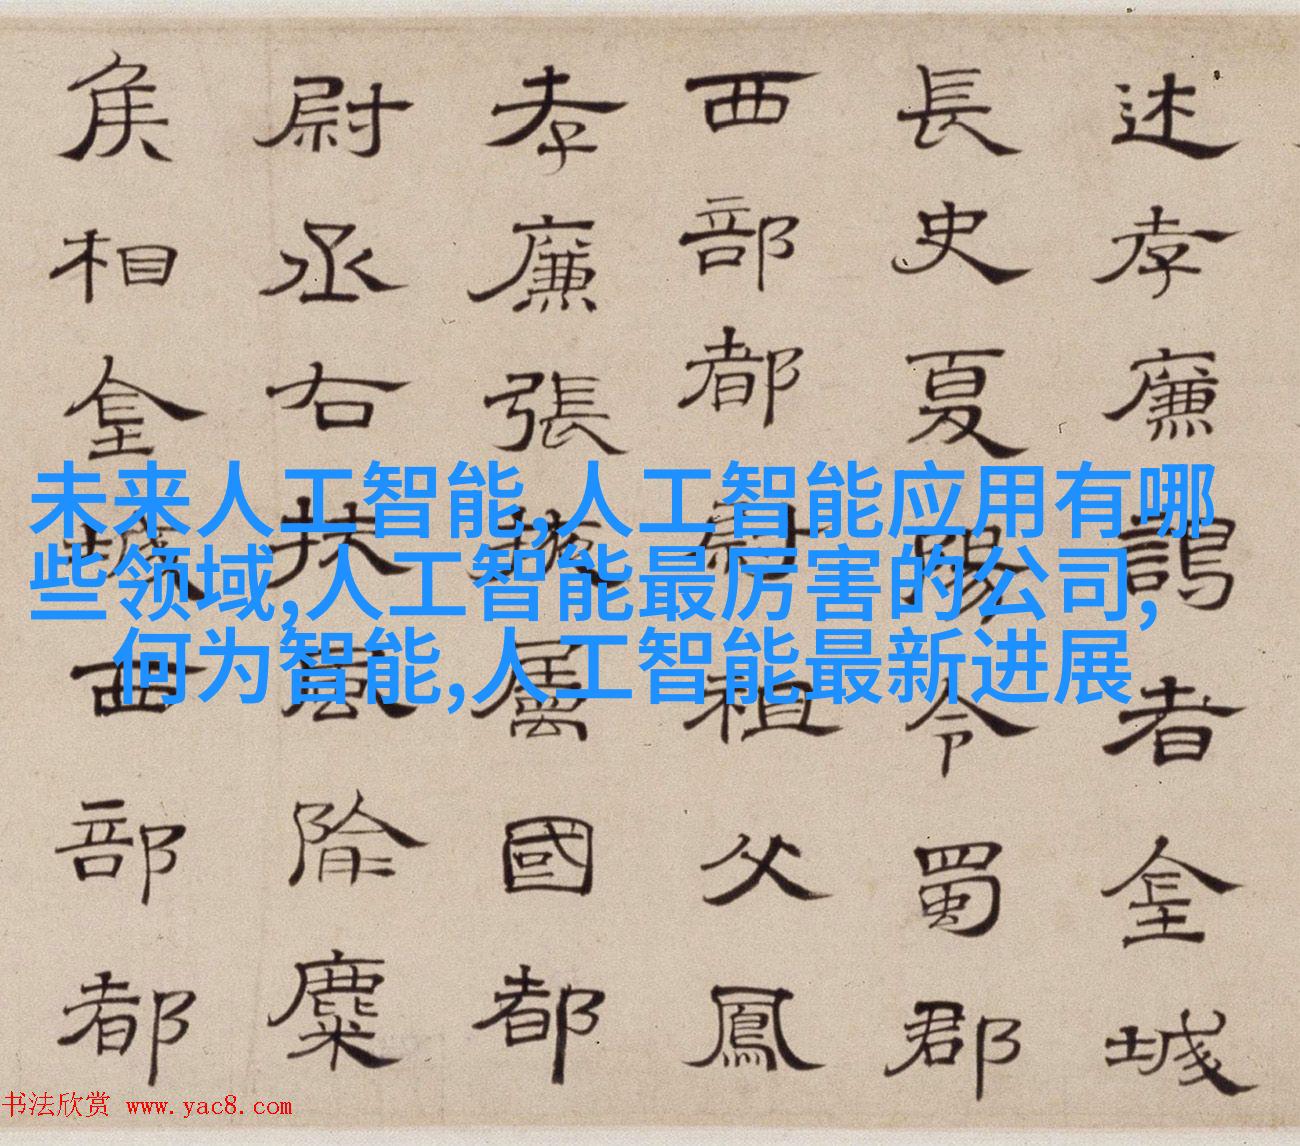 述孝廉謁者金城
長史夏陽令蜀郡
西部都尉祖父鳳
孝廉張掖屬國都
尉丞右扶風隃麋
侯相金城西部都
未来人工智能,人工智能应用有哪
些领域,人工智能最厉害的公司,
何为智能,人工智能最新进展
书法欣赏 www.yac8.com